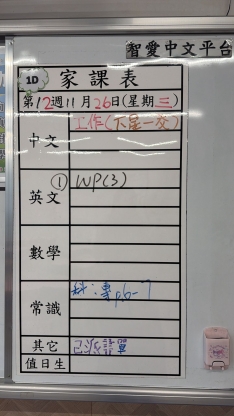 智愛中文平台
1D 家課表
第12週11月26日(星期三)
中文 工作(下星一交)
英文 ① WP(3)
數學
常識 科:專p6-7
其它
值日生